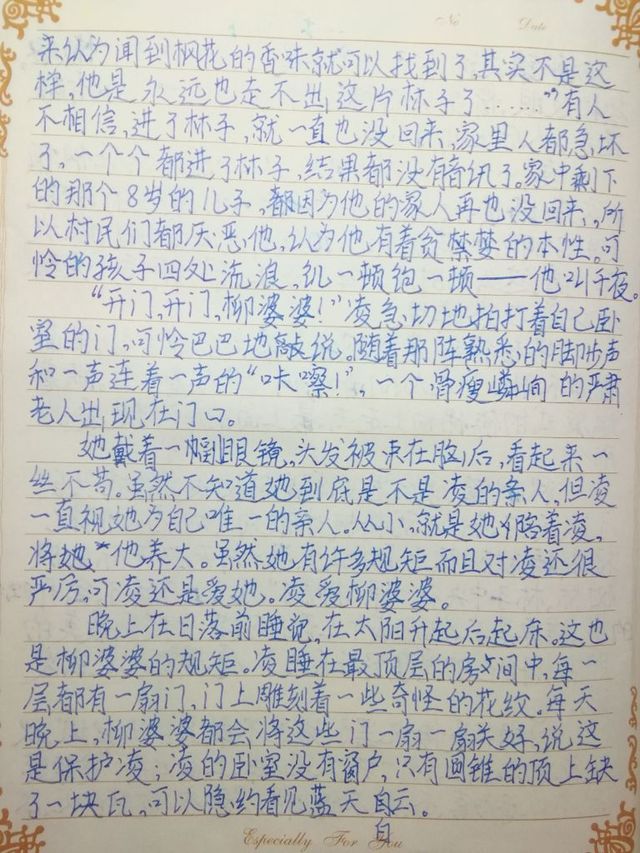 No Date
来认为闻到枫花的香味就可以找到了,其实不是这
样,他是永远也走不出这片林子了……”有人
不相信,进了林子,就一直也没回来,家里人都急坏
了,一个个都进了林子,结果都没有音讯了。家中剩下
的那个8岁的儿子,都因为他的家人再也没回来,所
以村民们都厌恶他,认为他有着贪婪的本性。可
怜的孩子四处流浪,饥一顿饱一顿——他叫千夜。
“开门,开门,柳婆婆!”凌急切地拍打着自己卧
室的门,可怜巴巴地敲说。随着那阵熟悉的脚步声
和一声连着一声的“咔嚓!”,一个骨瘦嶙峋的严肃
老人出现在门口。
她戴着一幅眼镜,头发被束在脑后,看起来一
丝不苟。虽然不知道她到底是不是凌的亲人,但凌
一直视她为自己唯一的亲人。从小,就是她陪着凌,
将她*他养大。虽然她有许多规矩而且对凌还很
严厉,可凌还是爱她。凌爱柳婆婆。
晚上在日落前睡觉,在太阳升起后起床。这也
是柳婆婆的规矩。凌睡在最顶层的房间中,每一
层都有一扇门,门上雕刻着一些奇怪的花纹。每天
晚上,柳婆婆都会将这些门一扇一扇关好,说这
是保护凌;凌的卧室没有窗户,只有圆锥的顶上缺
了一块瓦,可以隐约看见蓝天白云。
Especially For You